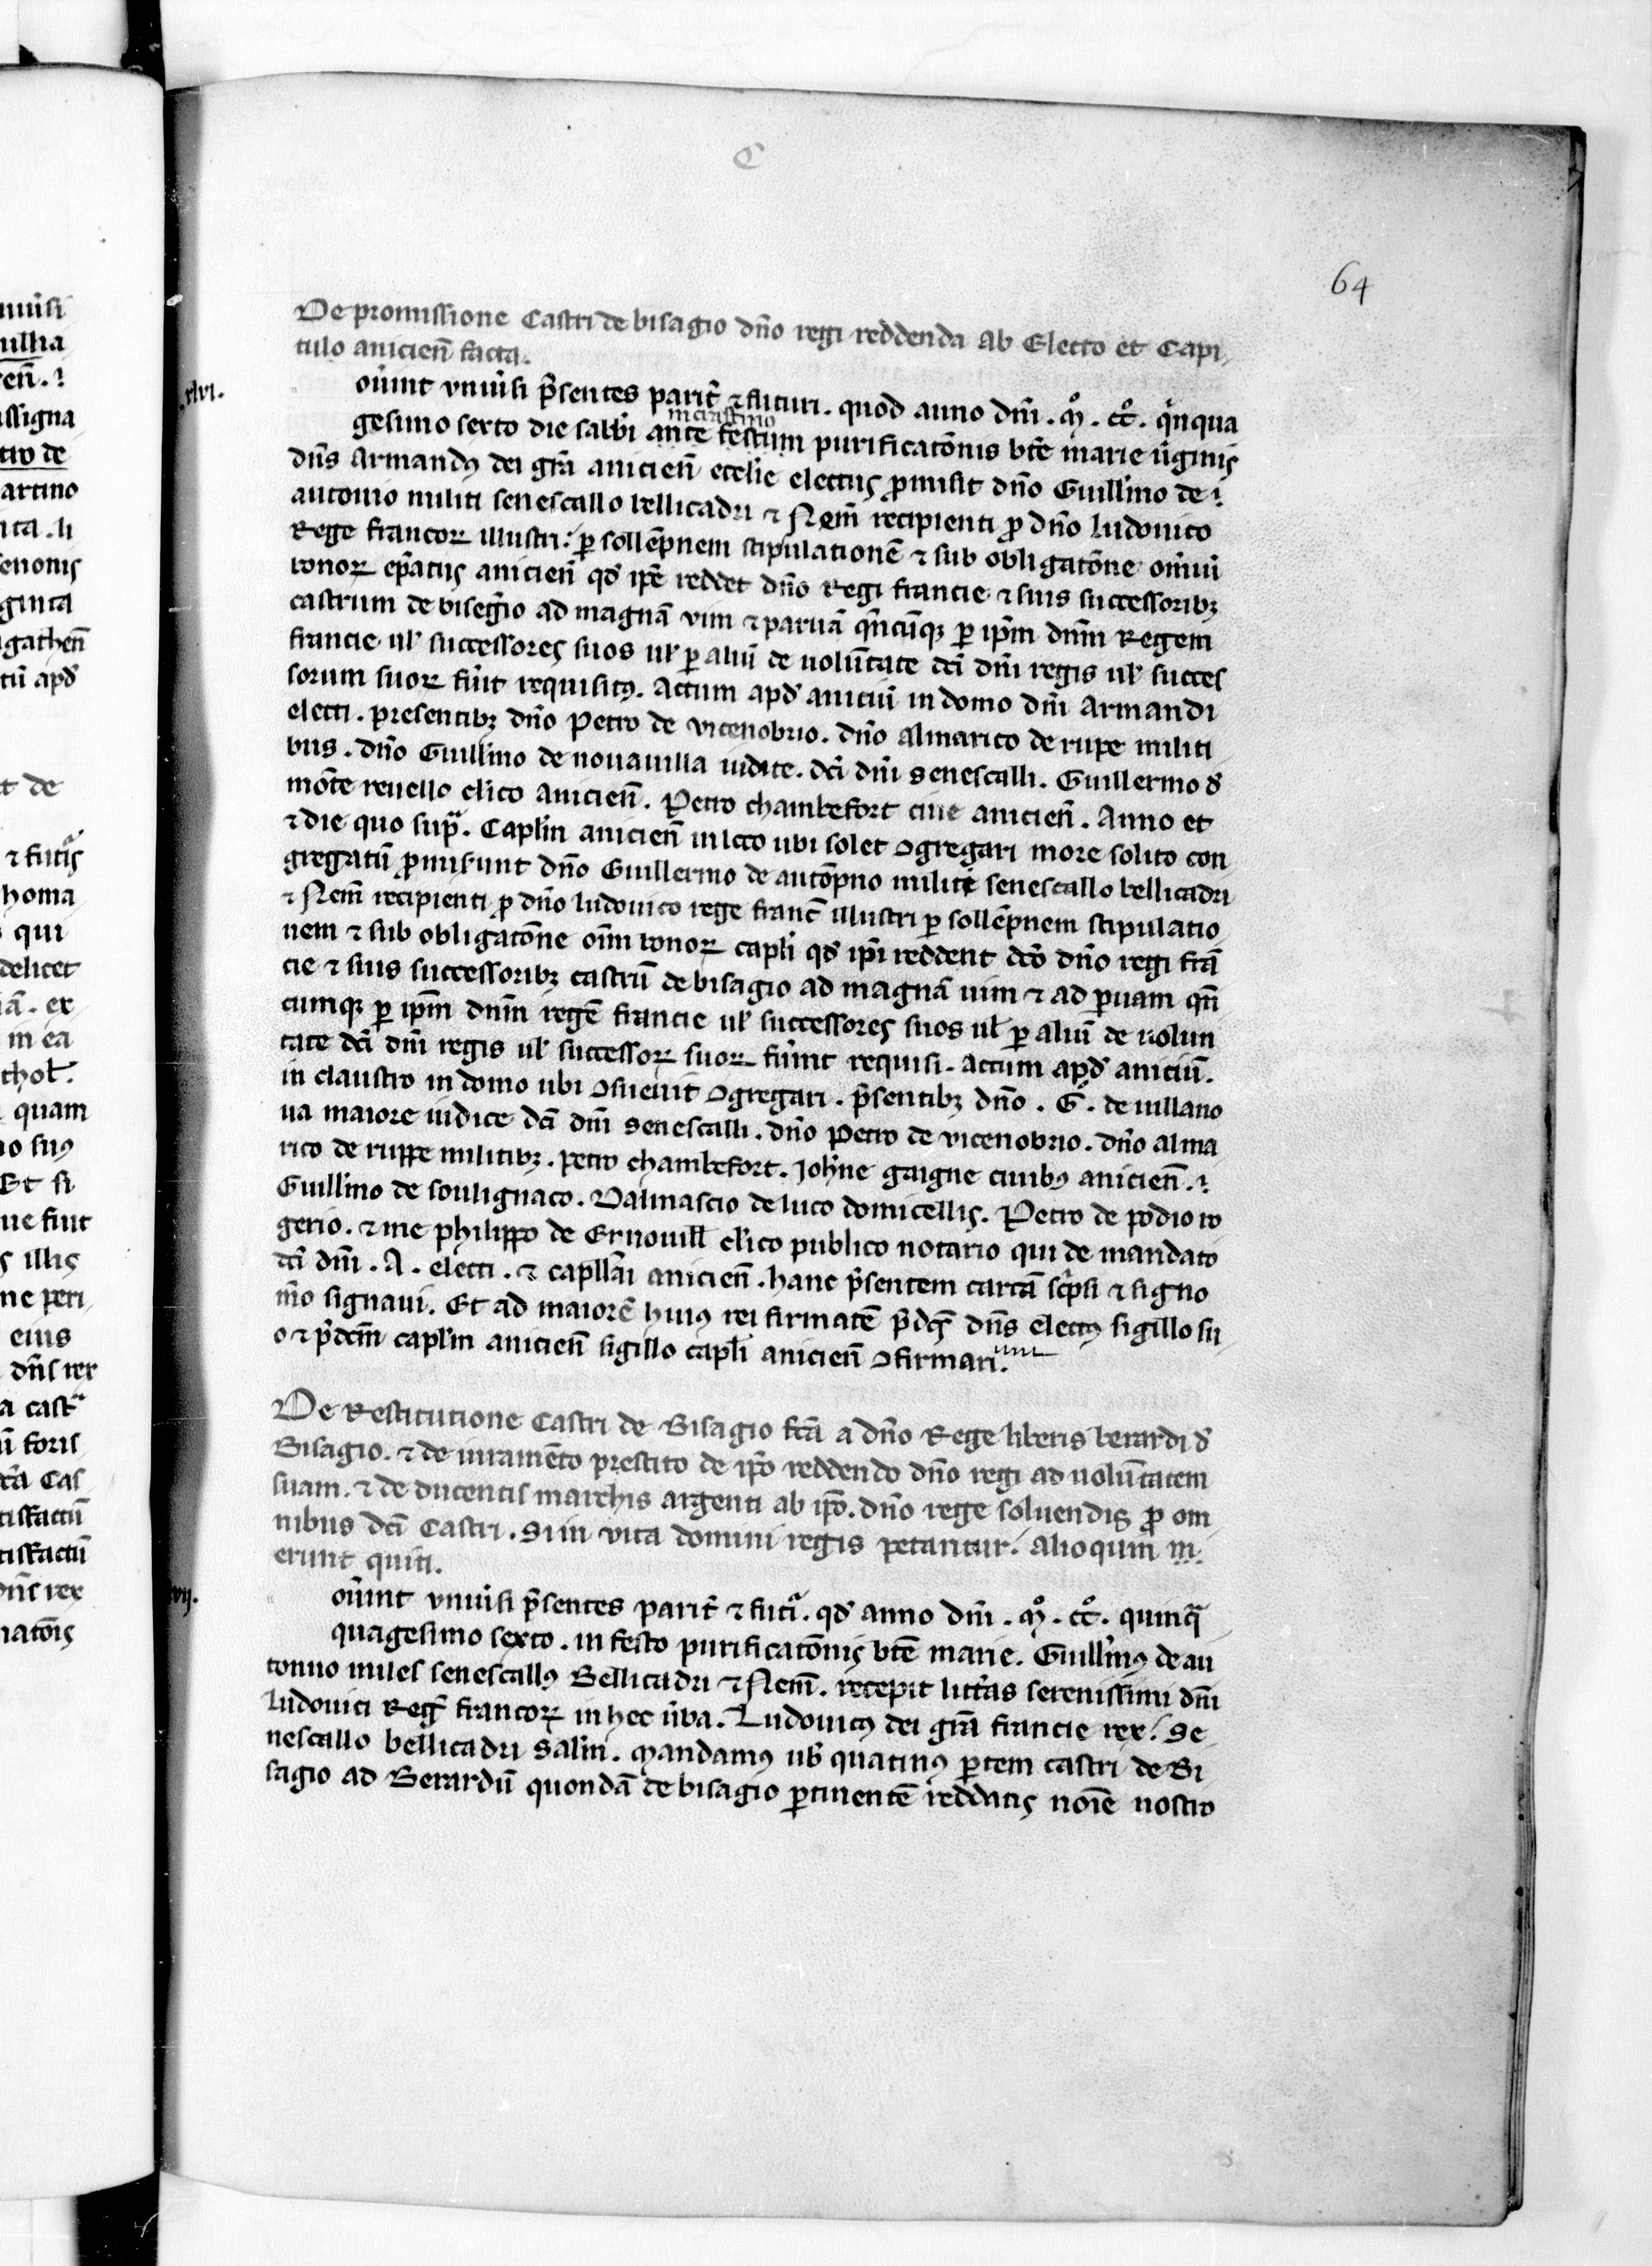 64
De promissione Castri de bisagio dño regi reddenda ab Electo et Capi
tulo anicieñ facta.
.xlvi.
oũint vniũsi p̃sentes parit̃ ⁊ futuri. quod anno dñi .mͦ. ccͦ. qͥnqua
in crastino
gesimo sexto die sabbi ante festum purificatõnis bt̃e marie ũginis
dñs Armandꝰ dei gr̃a anicieñ eccl̃ie electus ꝓmisit dño Guill̃mo de
autonio militi senescallo bellicadri ⁊ Nem̃ recipienti ꝓ dño ludouico
Rege francoꝝ illustri. ꝑ sollẽpnem stipulationẽ ⁊ sub obligatõne om̃iũ
bonoꝝ ep̃atus anicieñ qd̃ ip̃e reddet dño Regi francie ⁊ suis successoribꝫ
castrum de bisegio ad magnã vim ⁊ paruã qñcũqꝫ ꝑ ip̃m dñm Regem
francie ul̃ successores suos ul̃ ꝑ aliũ de uolũtate dc̃i dñi regis ul̃ succes
sorum suoꝝ fũit requisitꝰ. Actum apd̃ aniciũ in domo dñi Armandi
electi. presentibꝫ dño Petro de vicenobrio. dño Almarico de rupe militi
bus. dño Guill̃mo de nouauilla iudice. dc̃i dñi senescalli. Guillermo d̃
mõte reuello cl̃ico Anicieñ. Petro chambefort ciue anicieñ. Anno et
⁊ die quo supͣ. Capl̃m anicieñ in loco ubi solet ꝯgregari more solito con
gregatũ ꝓmiserunt dño Guillermo de autõpno militi senescallo bellicadri
⁊ Nem̃ recipienti ꝓ dño ludouico rege franc̃ illustri ꝑ sollẽpnem stipulatio
nem ⁊ sub obligatõne oĩm bonoꝝ capl̃i qd̃ ip̃i reddent dc̃o dño regi frã
cie ⁊ suis successoribꝫ castrũ de bisagio ad magnã uim ⁊ ad ꝑuam qñ
cumqꝫ ꝑ ip̃m dñm regẽ francie ul̃ successores suos ul̃ ꝑ aliũ de uolun
tate dc̃i dñi regis ul̃ successoꝝ suoꝝ fũint requisi. Actum apd̃ aniciũ.
in claustro in domo ubi ꝯsueuit ꝯgregari. p̃sentibꝫ dño. G̃. de uillano
ua maiore iudice dc̃i dñi senescalli. dño Petro de vicenobrio. dño alma
rico de ruppe militibꝫ. petro chambefort. Joh̃ne gaigne ciuibꝰ anicieñ.
Guill̃mo de soulignaco. Dalmascio de luco domicellis. Petro de podio ro
gerio. ⁊ me philippo de Ernouill̃ cl̃ico publico notario qui de mandato
dc̃i dñi. A. electi. ⁊ capll̃i anicieñ. hanc p̃sentem cartã sc̃psi ⁊ signo
m̃o signaui. Et ad maiorẽ huiꝰ rei firmatẽ p̃dc̃s dñs electꝰ sigillo su
o ⁊ p̃dcm̃ capl̃m anicieñ sigillo capl̃i anicieñ ꝯfirmari.
De Restitutione Castri de Bisagio fc̃a a dño Rege liberis berardi d̃
Bisagio. ⁊ de iuramẽto prestito de ip̃o reddendo dño regi ad uolũtatem
suam. ⁊ de ducentis marchis argenti ab ip̃o. dño rege soluendis ꝓ om
nibus dc̃i Castri. Si in vita domini regis petantur. Alioquin
erunt quiti.
oũint vniũsi p̃sentes parit̃ ⁊ futͥ. qd̃ anno dñi .mͦ. ccͦ. quinqͣ
quagesimo sexto. in festo purificatõnis bt̃e marie. Guill̃mꝰ de au
tonno miles senescallꝰ Bellicadri ⁊ Nem̃. recepit litt̃as serenissimi dñi
Ludouici Reg̃ francoꝝ in hec ũba. Ludouicꝰ dei gr̃a francie rex. Se
nescallo bellicadri salm̃. Mandamꝰ uob̃ quatinꝰ ꝑtem castri de Bi
sagio ad Berardũ quondã de bisagio ꝑtinentẽ reddatis noĩe nostro